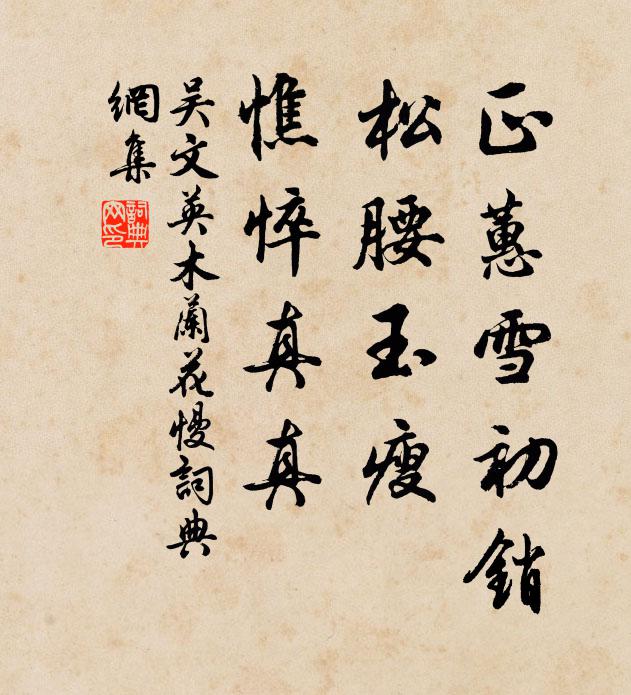 正蕙雪初銷
松腰玉瘦
憔悴真真
吳文英木蘭花慢詞典
網集
詞典網印